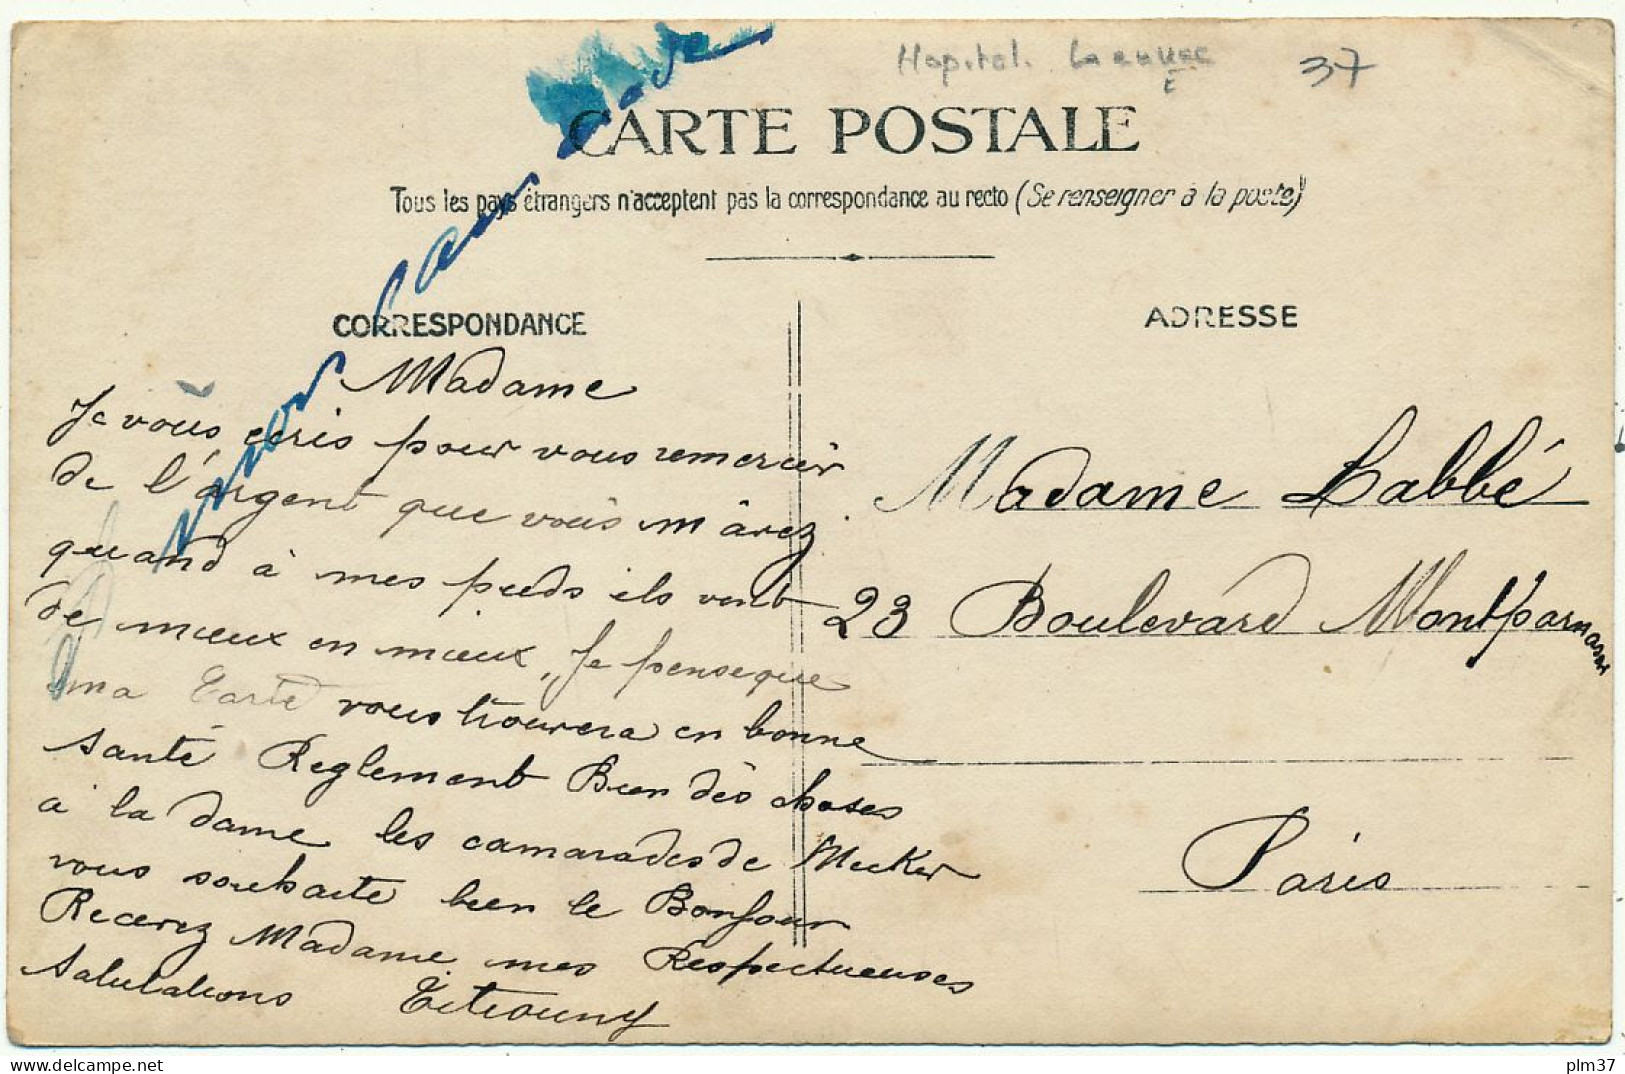 Hopital. Laennec
37
CARTE POSTALE
Tous les pays étrangers n'acceptent pas la correspondance au recto (Se renseigner à la poste)
CORRESPONDANCE
Madame
Je vous ecris pour vous remercier
de l'argent que vous m'avez
quand à mes pieds ils vont
de mieux en mieux, Je pense que
ma Carte vous trouvera en bonne
santé Reglement Bien dès choses
a la dame les camarades de
vous souhaite bien le Bonjour
Recevez Madame mes Respectueuses
salutations
ADRESSE
Madame Labbé
23 Boulevard Montparnasse
Paris
plm37